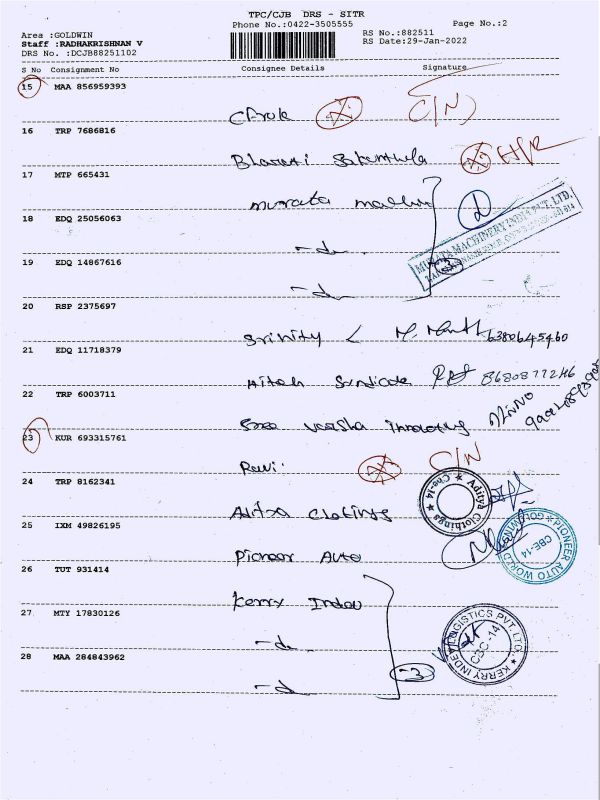 TPC/CJB DRS - SITR
Phone No.:0422-3505555
Page No.:2
Area :GOLDWIN
RS No.:882511
Staff :RADHAKRISHNAN V
RS Date:29-Jan-2022
DRS No. :DCJB88251102
S No Consignment No Consignee Details Signature
15 MAA 856959393
C/N
16 TRP 7686816
Bharani
17 MTP 665431
murata
18 EDQ 25056063
MURATA MACHINERY INDIA PVT. LTD.
-d-
3
19 EDQ 14867616
-d-
20 RSP 2375697
Srinity
6380645460
21 EDQ 11718379
Hitech Syndicate
8680877246
22 TRP 6003711
Sree Varsha
23 KUR 693315761
Ravi
C/N
24 TRP 8162341
Aditya Clothings
Aditya Clothings
Cbe-14
25 IXM 49826195
Pioneer Auto
PIONEER AUTO WORLD
GOLDWINS
CBE-14
26 TUT 931414
Kerry Indev
27 MTY 17830126
-d-
KERRY INDEV LOGISTICS PVT. LTD.
CBC-14
28 MAA 284843962
-3
-d-